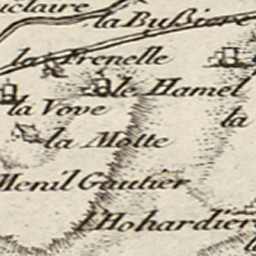 claire
la Bußiere
la Frenelle
le Hamel
la Vove
la
la Motte
Menil Gautier
l'Hohardier